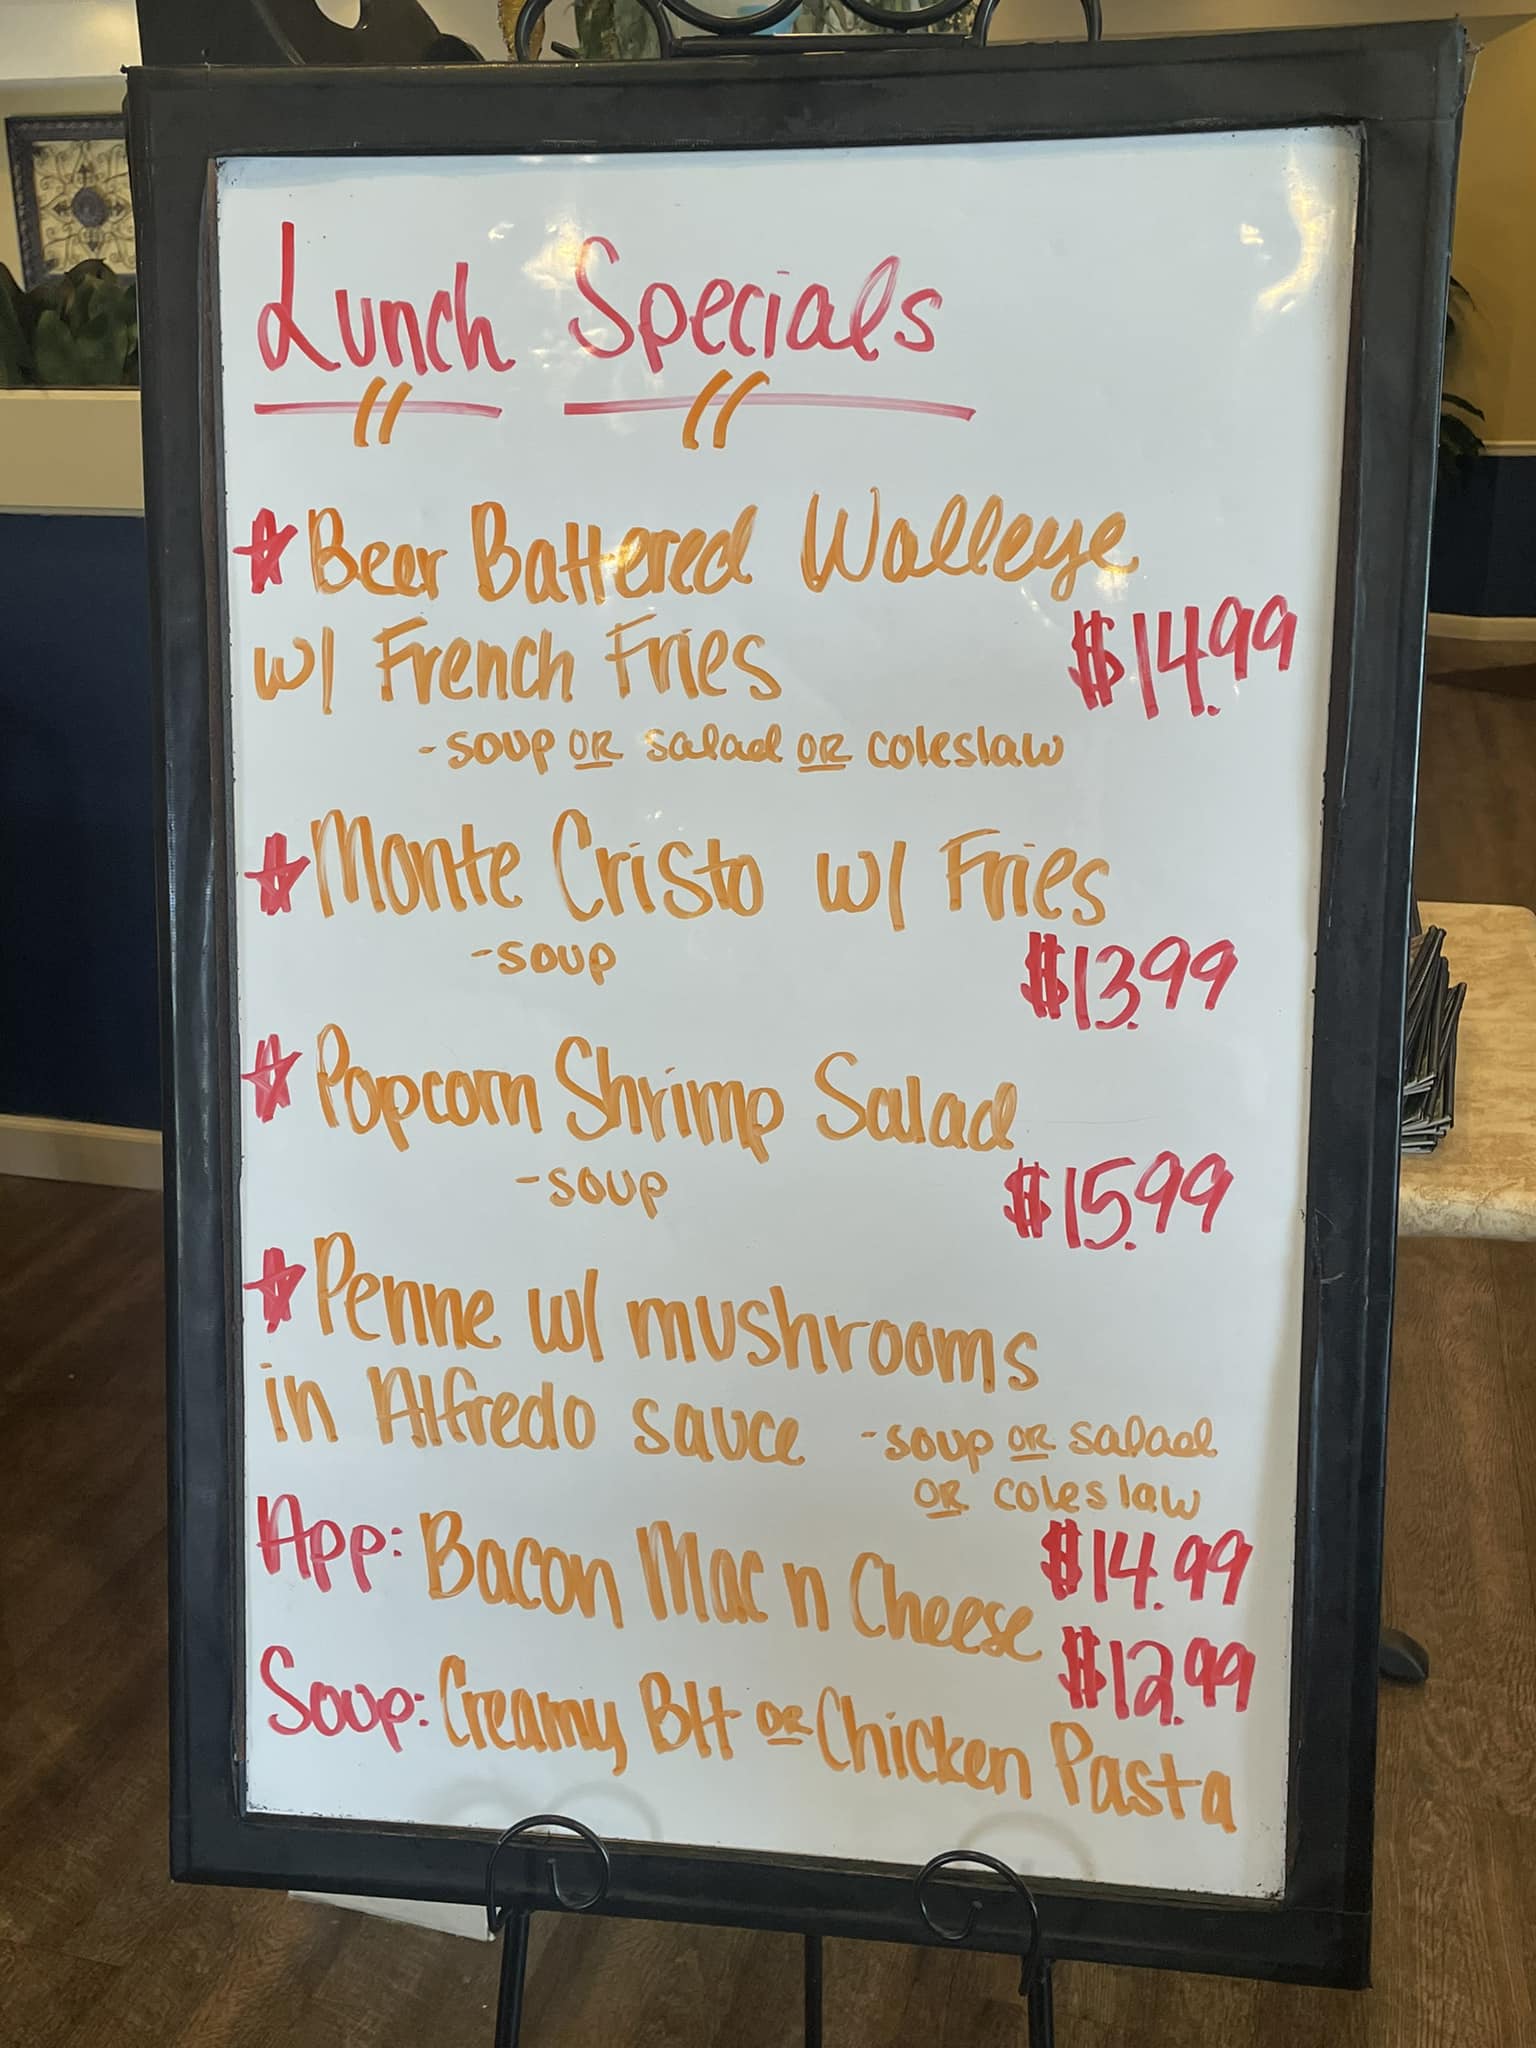 Lunch Specials
Beer Battered Walleye
w/ French Fries $14.99
-soup OR salad OR coleslaw
Monte Cristo w/ Fries
-soup $13.99
Popcorn Shrimp Salad
-soup $15.99
Penne w/ mushrooms
in Alfredo sauce -soup OR salad
OR coleslaw
$14.99
App: Bacon Mac n Cheese $12.99
Soup: Creamy Btt OR Chicken Pasta